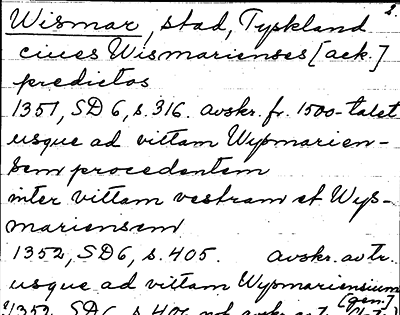 s.
Wismar, stad, Tyskland
ciues Wismarienses [ack.]
predictos
1351, SD 6, s. 316. avskr. fr. 1500-talet
usque ad vittam Wysmarien-
sem procedentem
inter vittam vestram et Wys-
mariensem
1352, SD 6, s. 405. avskr. av tr.
usque ad vittam Wysmariensium
[gen.]
1352, SD 6, s. 406